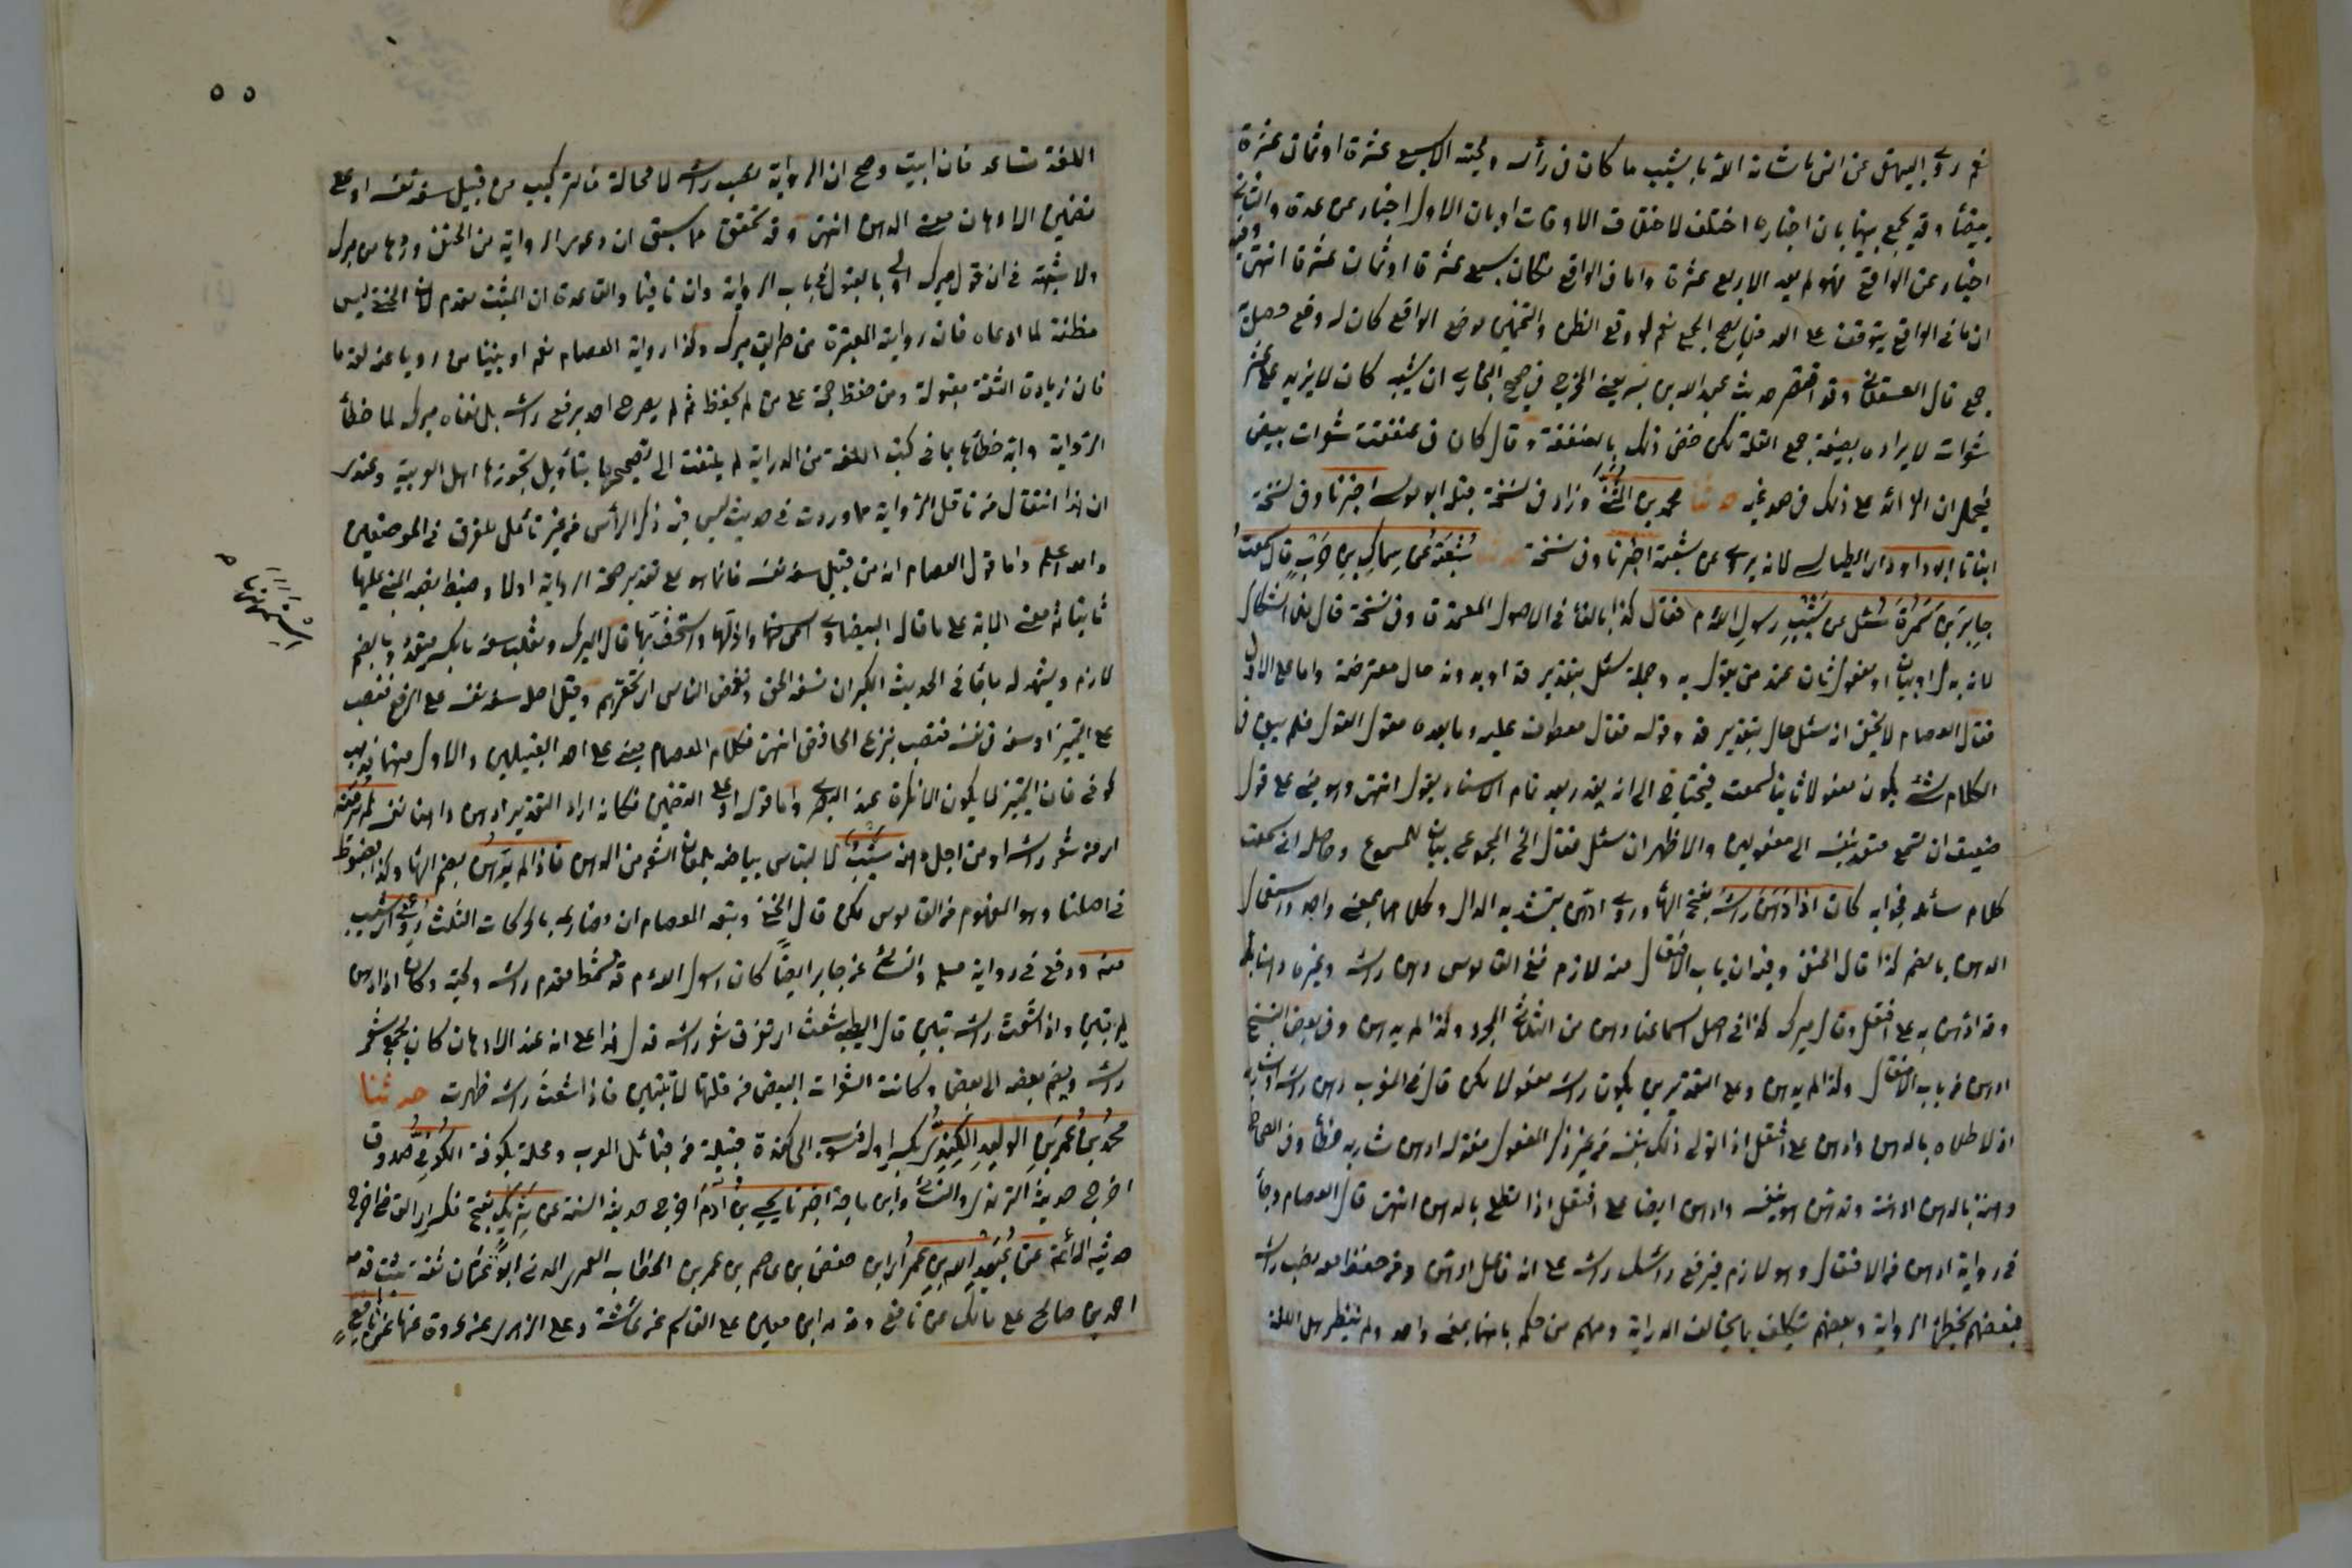 نعم روى البيهقي عن انس ما شانه الله بالشيب ما كان في رأسه ولحيته الا سبع عشرة او ثمان عشرة
بيضاء وقد يجمع بينهما بان اخباره اختلف لاختلاف الاوقات او بان الاول اخبار عن عده والثاني
اخبار عن الواقع فهو لم يعد الا اربع عشرة واما في الواقع فكان سبع عشرة او ثمان عشرة انتهى وفيه
ان ما في الواقع يتوقف على العد فلا يصح الجمع نعم لو وقع الظن والتخمين موضع الواقع كان له وقع وحصل له
جمع قال العسقلاني وقد اقتضى حديث عبد الله بن بسر يعني المخرج في صحيح البخاري ان شيبه كان لا يزيد على عشر
شعرات لايراده بصيغة جمع القلة لكن خص ذلك بالعنفقة وقال كان في عنفقته شعرات بيض
فيحمل ان الزائد على ذلك في صدغيه حدثنا محمد بن المثنى وزاد في نسخة قبله ابو موسى اخبرنا وفي نسخة
انبانا ابو داود اي الطيالسي لانه يروي عن شعبة اخبرنا وفي نسخة حدثنا شعبة عن سماك بن حرب قال سمعت
جابر بن سمرة سئل عن شيب رسول الله م فقال كذا بالفاء في الاصول المعتمدة وفي نسخة قال بلا اشكال
لانه بدل او بيان او مفعول ثان عند من يقول به وجملة سئل بتقدير قد او بدونه حال معترضة واما على الاول
فقال العصام لا يخفى ان سئل حال بتقدير قد وقوله فقال معطوف عليه وما بعده مقول القول فلم يبق في
الكلام شئ يكون مفعولا ثانيا لسمعت فيحتاج الى انه يقدر بعد تمام الاسناد يقول انتهى وهو مبني على قول
ضعيف ان سمع متعد بنفسه الى مفعولين والاظهر ان سئل فقال الخ المجموع بيان للمسموع وحاصله اني سمعت
كلام سائله وجوابه كان اذا دهن رأسه بفتح الهاء وروي ادهن بتشديد الدال وكلاهما بمعنى واحد واستعمال
الدهن بالضم كذا قال الحنفي وفيه ان باب الافتعال منه لازم ففي القاموس دهن رأسه وغيره دهنا بله
وقد ادهن به على افتعل وقال ميرك كذا في اصل سماعنا دهن من الثلاثي المجرد وكذا لم يدهن وفي بعض النسخ
ادهن من باب الافتعال وكذا لم يدهن وعلى التقديرين يكون رأسه مفعولا لكن قال في المغرب دهن رأسه او شاربه
اذا طلاه بالدهن وادهن على افتعل اذا تولى ذلك بنفسه من غير ذكر المفعول فقوله ادهن شاربه خطأ وفي الصحاح
دهنته بالدهن ادهنه وتدهن هو بنفسه وادهن ايضا على افتعل اذا تطلى بالدهن انتهى قال العصام وجاء
في رواية ادهن من الافتعال وهو لازم فيرفع رأسه على انه فاعل ادهن وقد حفظ معه نصب رأسه
فبعضهم يخطئ الرواية وبعضهم يتكلف بما يخالف الدراية ومنهم من حكم بانهما بمعنى واحد ولم ينظر هل اللغة
٥٥
اللغة تساعد فان ابيت وصح ان الرواية بنصب رأسه لا محالة فالتركيب من قبيل سفه نفسه او على
تضمين الادهان معنى الدهن انتهى وقد تحقق بما سبق ان دعوى الرواية من الحنفي وردها من ميرك
ولا شبهة في ان قول ميرك اولى بالقبول في باب الرواية وان نافيا والقاعدة ان المثبت مقدم لان الحنفي ليس
مظنة لما ادعاه فان روايته المعتبرة من طريق ميرك وكذا رواية العصام نعم لو بينا من رويا عنه لقدما
فان زيادة الثقة مقبولة ومن حفظ حجة على من لم يحفظ ثم لم يصرح احد برفع رأسه بل نفاه ميرك لما خطأ
الرواية وايد خطأها بما في كتب اللغة من الدراية لم يلتفت الى تصحيحها بتأويل تجوزها اهل العربية وعندي
ان هذا انتقال من ناقل الرواية مما وردت في حديث ليس فيه ذكر الرأس من غير تأمل للفرق في الموضعين
والله اعلم واما قول العصام انه من قبيل سفه نفسه فانما هو على تقدير صحة الرواية اولا وضبط بضم المبني عليها
ثانيا ثم معنى الآية على ما قال البيضاوي استمهنها واذلها واستخف بها قال المبرد وثعلب سفه بالكسر متعد وبالضم
لازم ويشهد له ما جاء في الحديث الكبر ان تسفه الحق وتغمض الناس اي تحتقرهم وقيل اصله سفه نفسه على الرفع فنصب
على التمييز او سفه في نفسه فنصب بنزع الخافض انتهى فكلام العصام مبني على احد القيلين والاول منهما مذهب
كوفي فان التمييز لا يكون الا نكرة عند البصري واما قوله او على التضمين فكانه اراد التقدير ادهن داهنا نفسه لم ير منه
اي من شعر رأسه او من اجل دهنه شيب لالتباس بياضه بلمعان الشعر من الدهن فاذا لم يدهن بضم الهاء وكذا مضبوط
في اصلنا وهو المفهوم من القاموس لكن قال الحنفي وتبعه العصام ان مضارعه بالحركات الثلاث رؤي اي شيب
منه ووقع في رواية مسلم والنسائي عن جابر ايضا كان رسول الله م قد شمط مقدم رأسه ولحيته وكان اذا ادهن
لم يتبين واذا شعث رأسه تبين قال الطيبي شعث اي تفرق شعر رأسه فدل هذا على انه عند الادهان كان يجمع شعر
رأسه ويضم بعضه الى بعض وكانت الشعرات البيض من قلتها لا تتبين فاذا شعث رأسه ظهرت حدثنا
محمد بن عمر بن الوليد الكندي بكسر اوله منسوب الى كندة قبيلة من قبائل العرب ومحلة بكوفة الكوفي صدوق
اخرج حديثه الترمذي والنسائي وابن ماجة اخبرنا يحيى بن آدم اخرج حديثه الستة عن شريك بفتح فكسر اي القاضي اخرج
حديثه الائمة عن عبيد الله بن عمر اي ابن حفص بن عاصم بن عمر بن الخطاب العمري المدني ابو عثمان ثقة ثبت قدمه
احمد بن صالح على مالك عن نافع وقدمه ابن معين على القاسم عن عائشة وعلى الزهري عن عروة عنها عن نافع